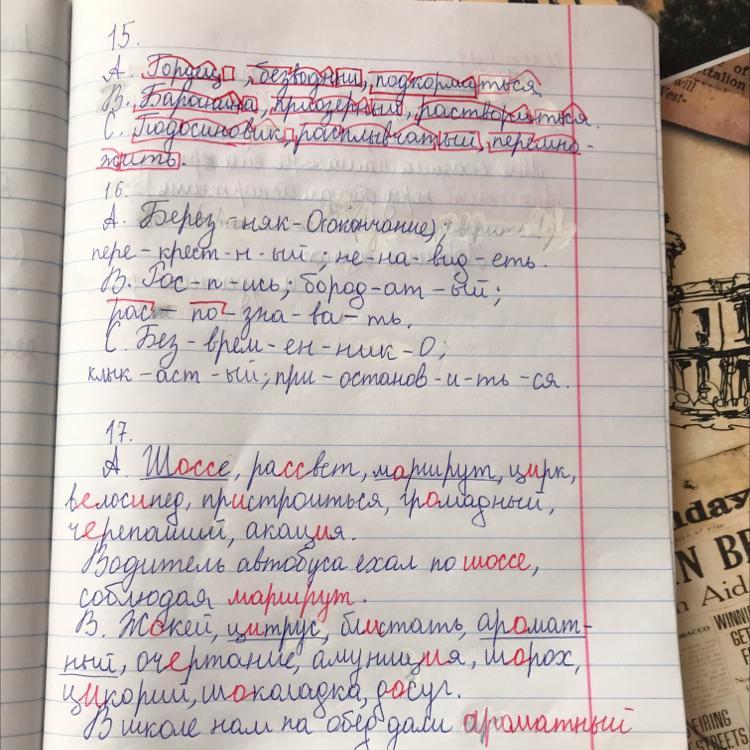 15.
А. Гордец, безводный, подкормиться
В. Баранина, приозерный, раствориться.
С. Подосиновик, расплывчатый, перемно-
жить.
16.
А. Берез-няк-0(окончание);
пере-крест-н-ый; не-на-вид-еть.
В. Рос-п-ись; бород-ат-ый;
рас-по-зна-ва-ть,
С. Без-врем-ен-ник-0;
клык-аст-ый; при-останов-и-ть-ся.
17.
А. Шоссе, рассвет, маршрут, цирк,
велосипед, пристроиться, громадный,
черепаший, акация.
Водитель автобуса ехал по шоссе,
соблюдая маршрут.
В. Жокей, цитрус, блистать, аромат-
ный, очертание, амуниция, шорох,
цикорий, шоколадка, досуг.
В школе нам на обед дали ароматный
will
West-
nday
Aid
WINN
FIRING
STREETS